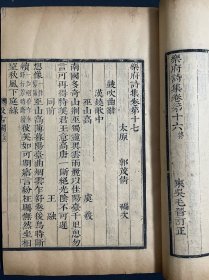 樂府詩集卷第十六終
東吳毛晉訂正
樂府詩集卷第十七
太原 郭茂倩 編次
鼓吹曲辭
漢鐃歌中
巫山高 虞羲
南國多奇山荊巫獨靈異雲雨麗以佳陽臺千里思勿
言可再得特美君王意高唐一斷絕光陰不可遲
同前 王融
想像巫山高薄暮陽臺曲煙雲乍舒卷猿鳥時斷
望秋風下庭綠